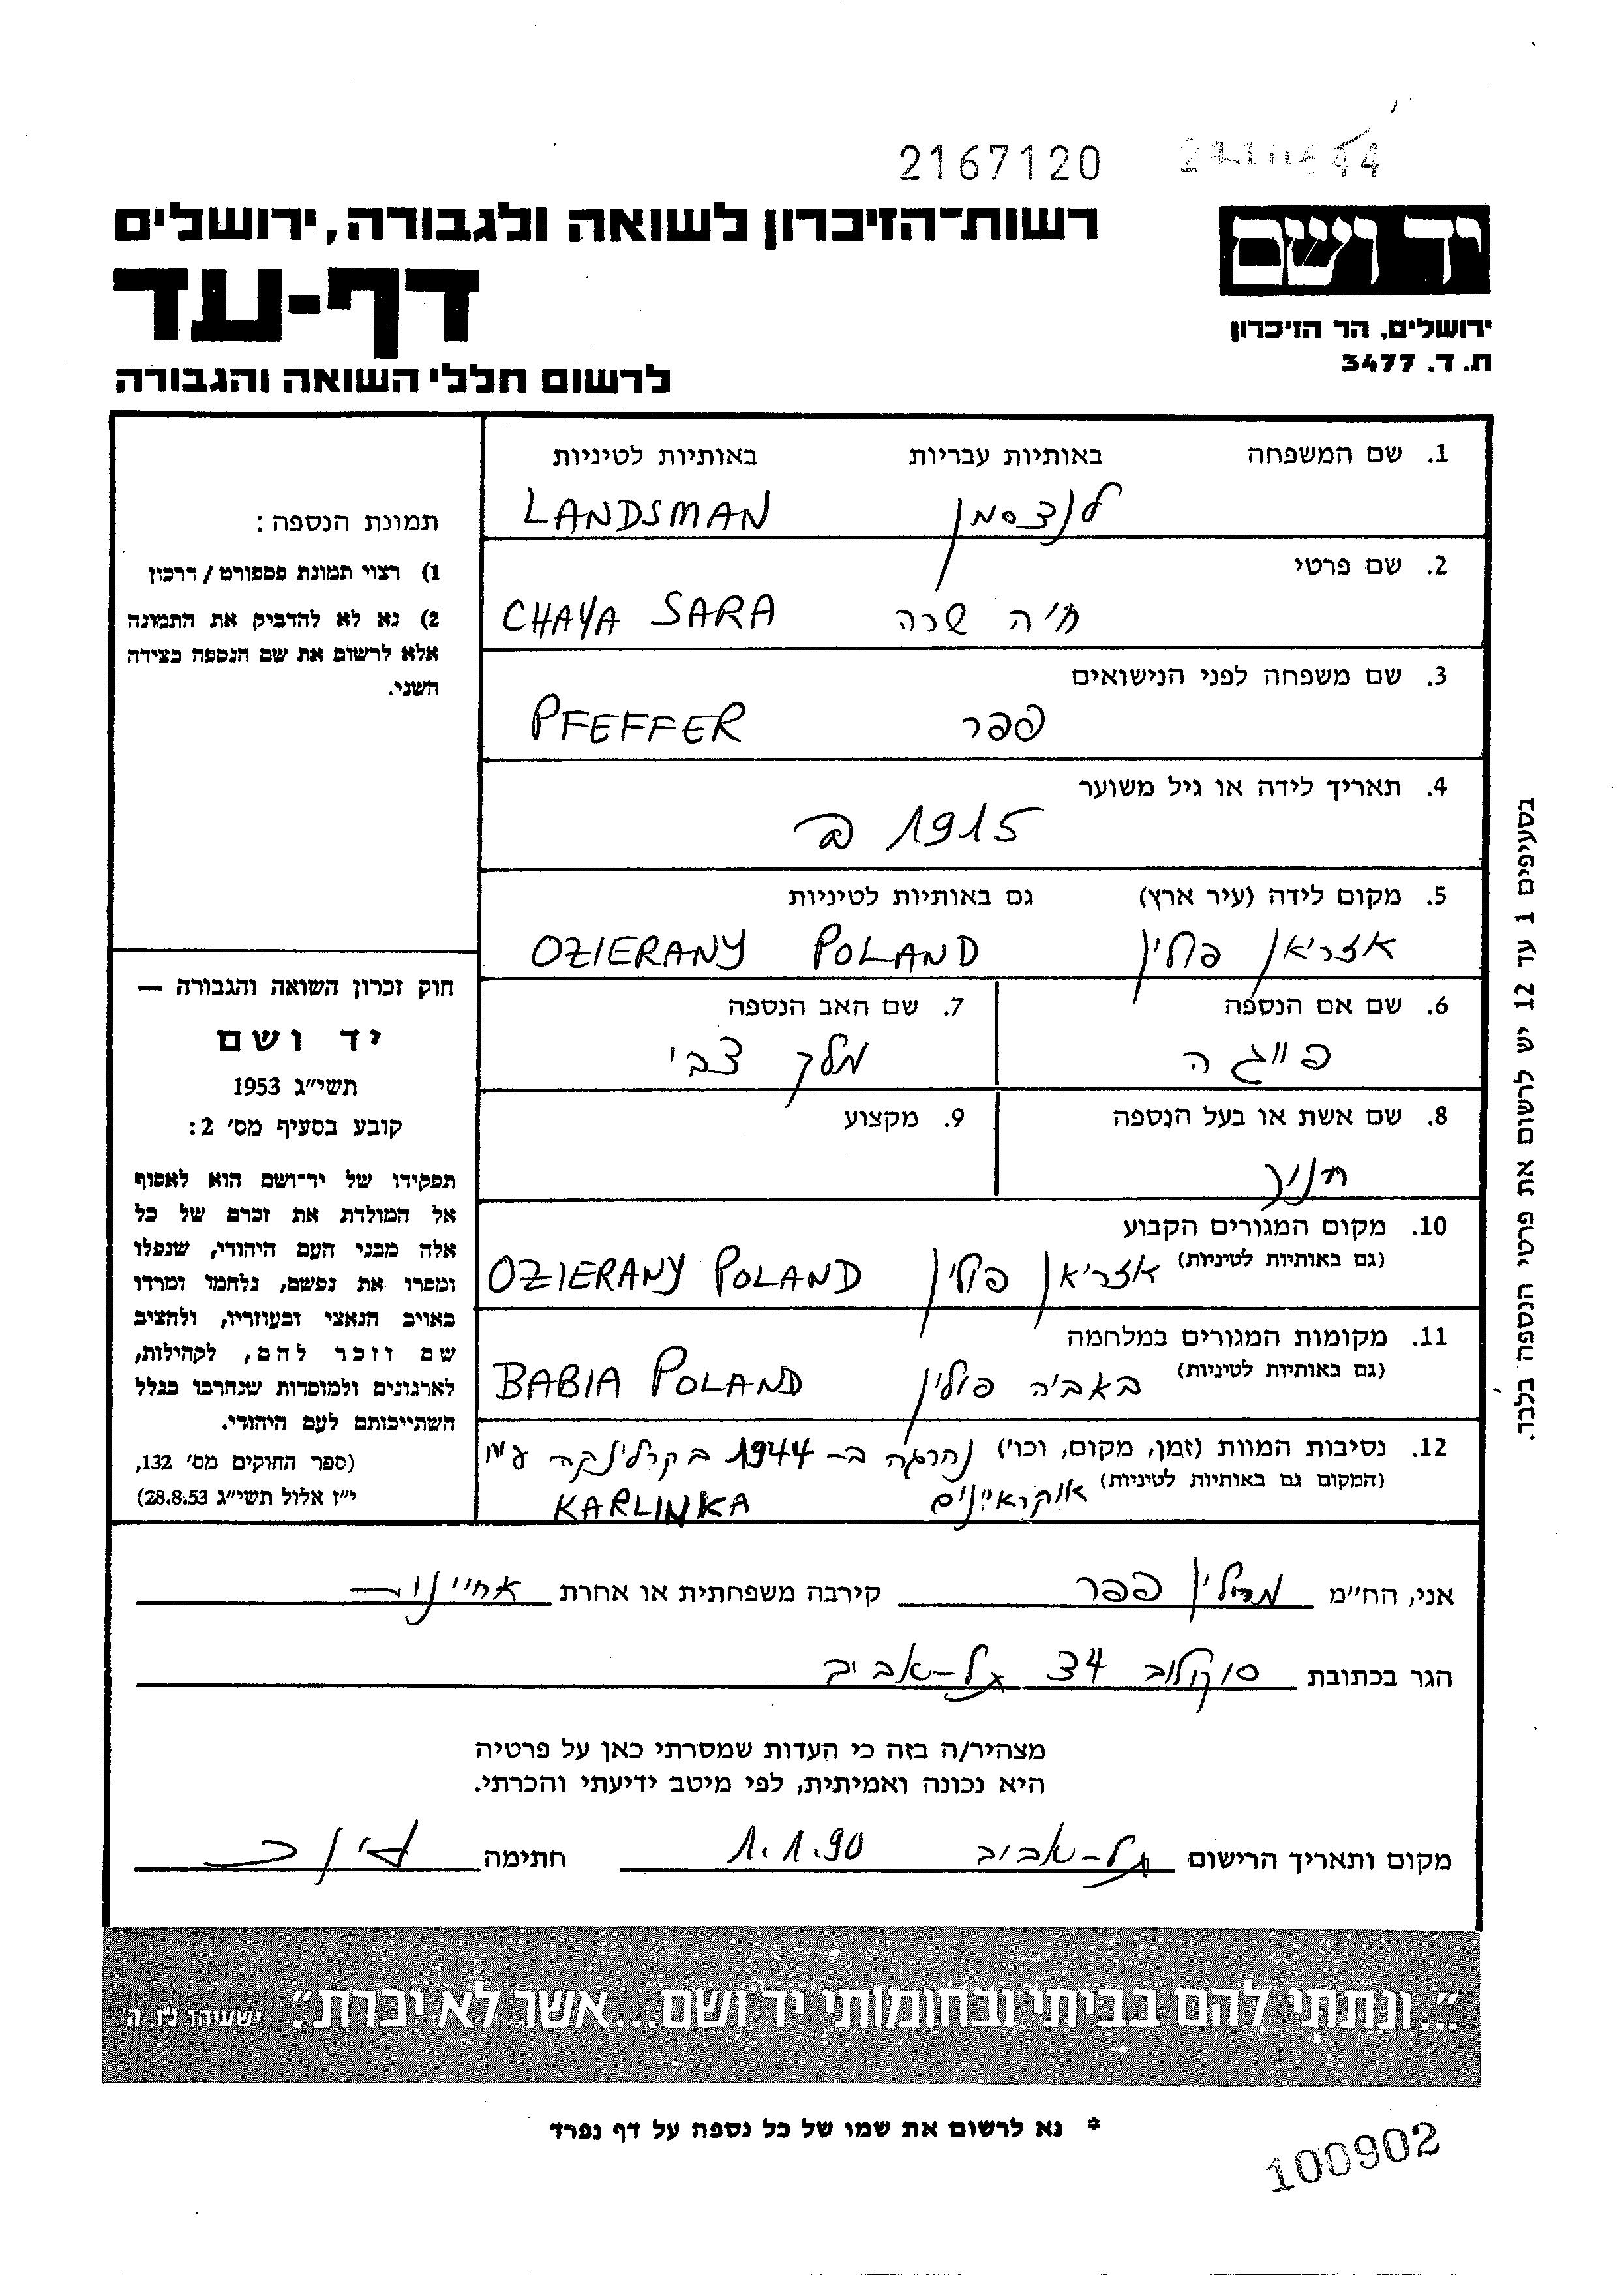 2167120
רשות־הזיכרון לשואה ולגבורה, ירושלים
יד ושם
דף-עד
ירושלים, הר הזיכרון
ת. ד. 3477
לרשום חללי השואה והגבורה
1. שם המשפחה באותיות עבריות באותיות לטיניות
לנצסמן LANDSMAN
2. שם פרטי
חיה שרה CHAYA SARA
3. שם משפחה לפני הנישואים
פפר PFEFFER
4. תאריך לידה או גיל משוער
1915
5. מקום לידה (עיר ארץ) גם באותיות לטיניות
אזריאן פולין OZIERANY POLAND
6. שם אם הנספה 7. שם האב הנספה
פייגה מלך צבי
8. שם אשת או בעל הנספה 9. מקצוע
חנוך
10. מקום המגורים הקבוע
(גם באותיות לטיניות) אזריאן פולין OZIERANY POLAND
11. מקומות המגורים במלחמה
(גם באותיות לטיניות) באביה פולין BABIA POLAND
12. נסיבות המוות (זמן, מקום, וכו') נהרגה ב- 1944 בקרלינקה ע"י
(המקום גם באותיות לטיניות) אוקראיינים KARLINKA
תמונת הנספה:
1) רצוי תמונת פספורט / דרכון
2) נא לא להדביק את התמונה
אלא לרשום את שם הנספה בצידה
השני.
חוק זכרון השואה והגבורה —
יד ושם
תשי"ג 1953
קובע בסעיף מס' 2:
תפקידו של יד־ושם הוא לאסוף
אל המולדת את זכרם של כל
אלה מבני העם היהודי, שנפלו
ומסרו את נפשם, נלחמו ומרדו
באויב הנאצי ובעוזריו, ולהציב
שם וזכר להם, לקהילות,
לארגונים ולמוסדות שנחרבו בגלל
השתייכותם לעם היהודי.
(ספר החוקים מס' 132,
י"ז אלול תשי"ג 28.8.53)
בסעיפים 1 עד 12 יש לרשום את פרטי הנספה בלבד.
אני, הח"מ פפר קירבה משפחתית או אחרת
הגר בכתובת סוקולוב 34 תל-אביב
מצהיר/ה בזה כי העדות שמסרתי כאן על פרטיה
היא נכונה ואמיתית, לפי מיטב ידיעתי והכרתי.
מקום ותאריך הרישום תל-אביב 1.1.90 חתימה
"...ונתתי להם בביתי ובחומותי יד ושם...אשר לא יכרת". ישעיהו נו, ה'
* נא לרשום את שמו של כל נספה על דף נפרד
100902